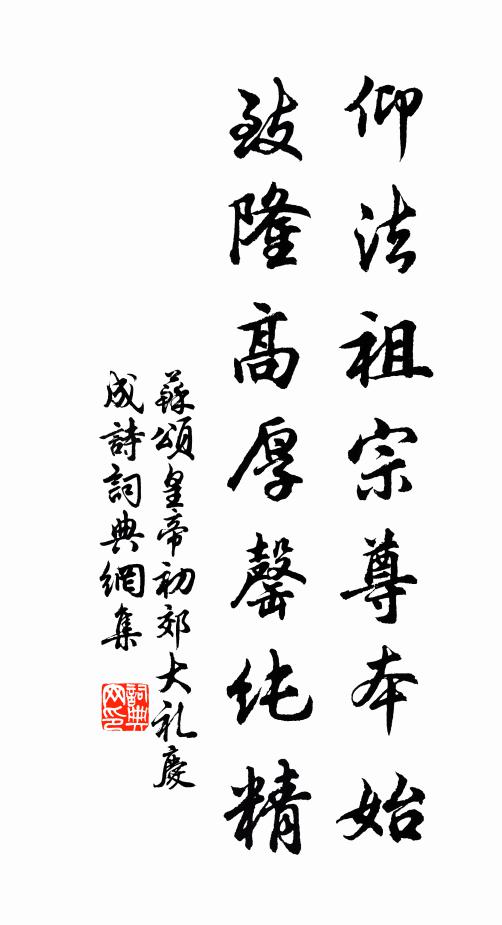 仰法祖宗尊本始
致隆高厚罄纯精
蘇頌皇帝初郊大礼慶
成詩詞典網集
詞典网印